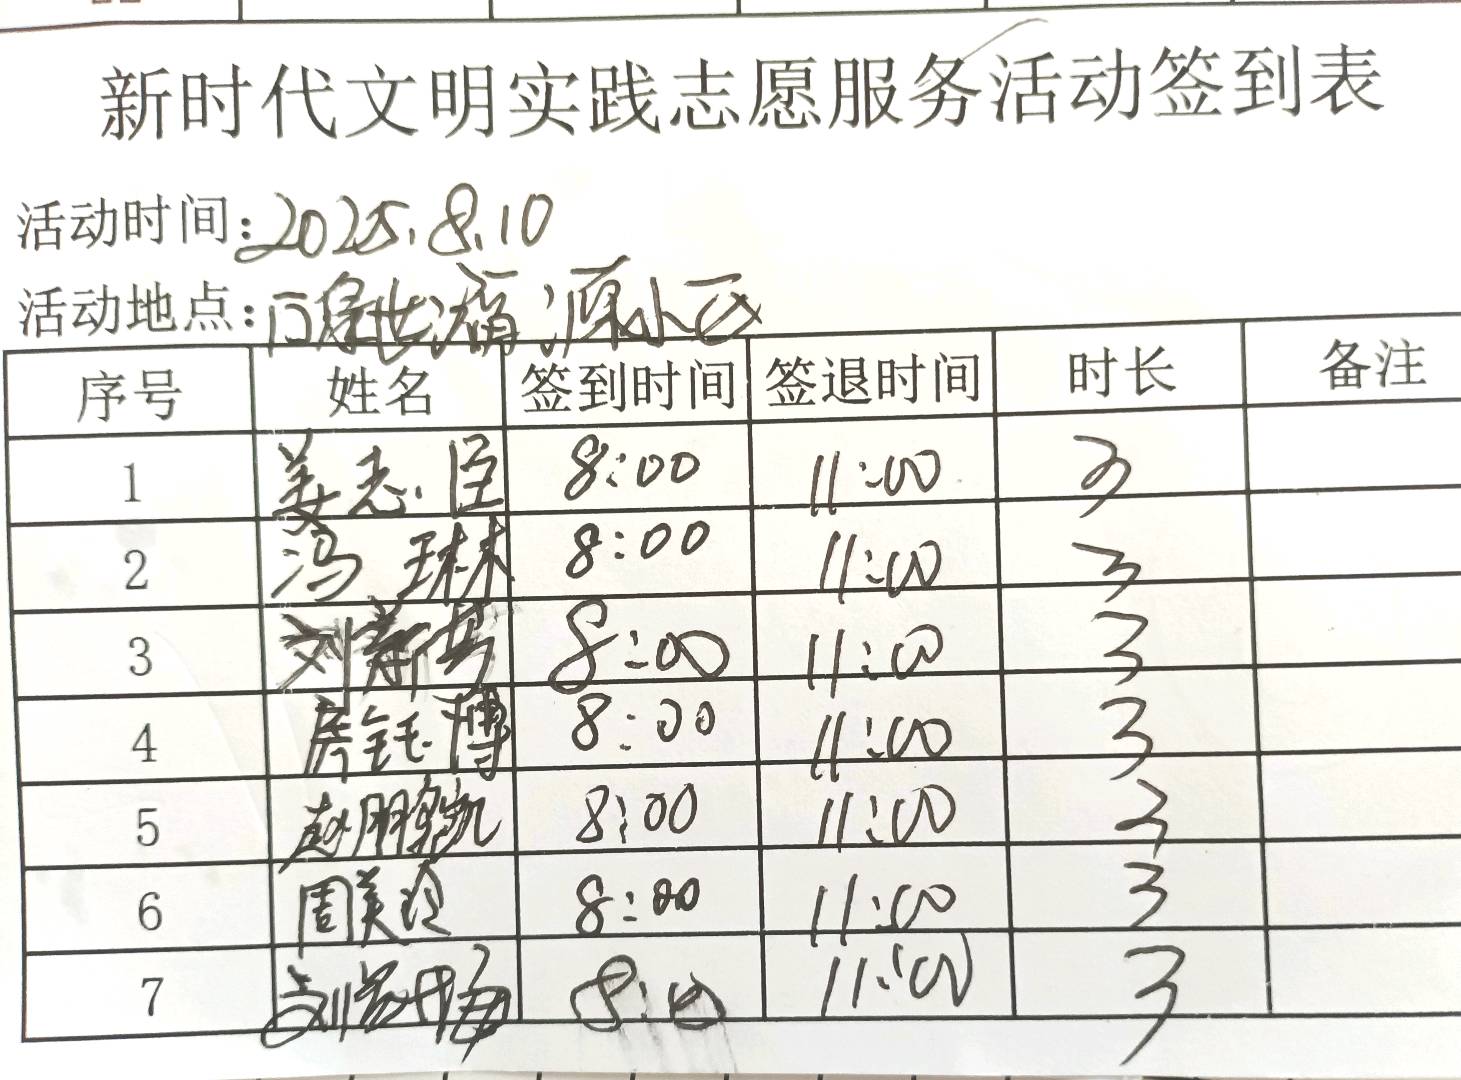 新时代文明实践志愿服务活动签到表
活动时间:2025.8.10
活动地点:源小区
序号 姓名 签到时间 签退时间 时长 备注
1 姜志臣 8:00 11:00 3
2 冯琳 8:00 11:00 3
3 刘 8:00 11:00 3
4 房钰博 8:00 11:00 3
5 赵鹏凯 8:00 11:00 3
6 周美玲 8:00 11:00 3
7 刘 梅 8:00 11:00 3